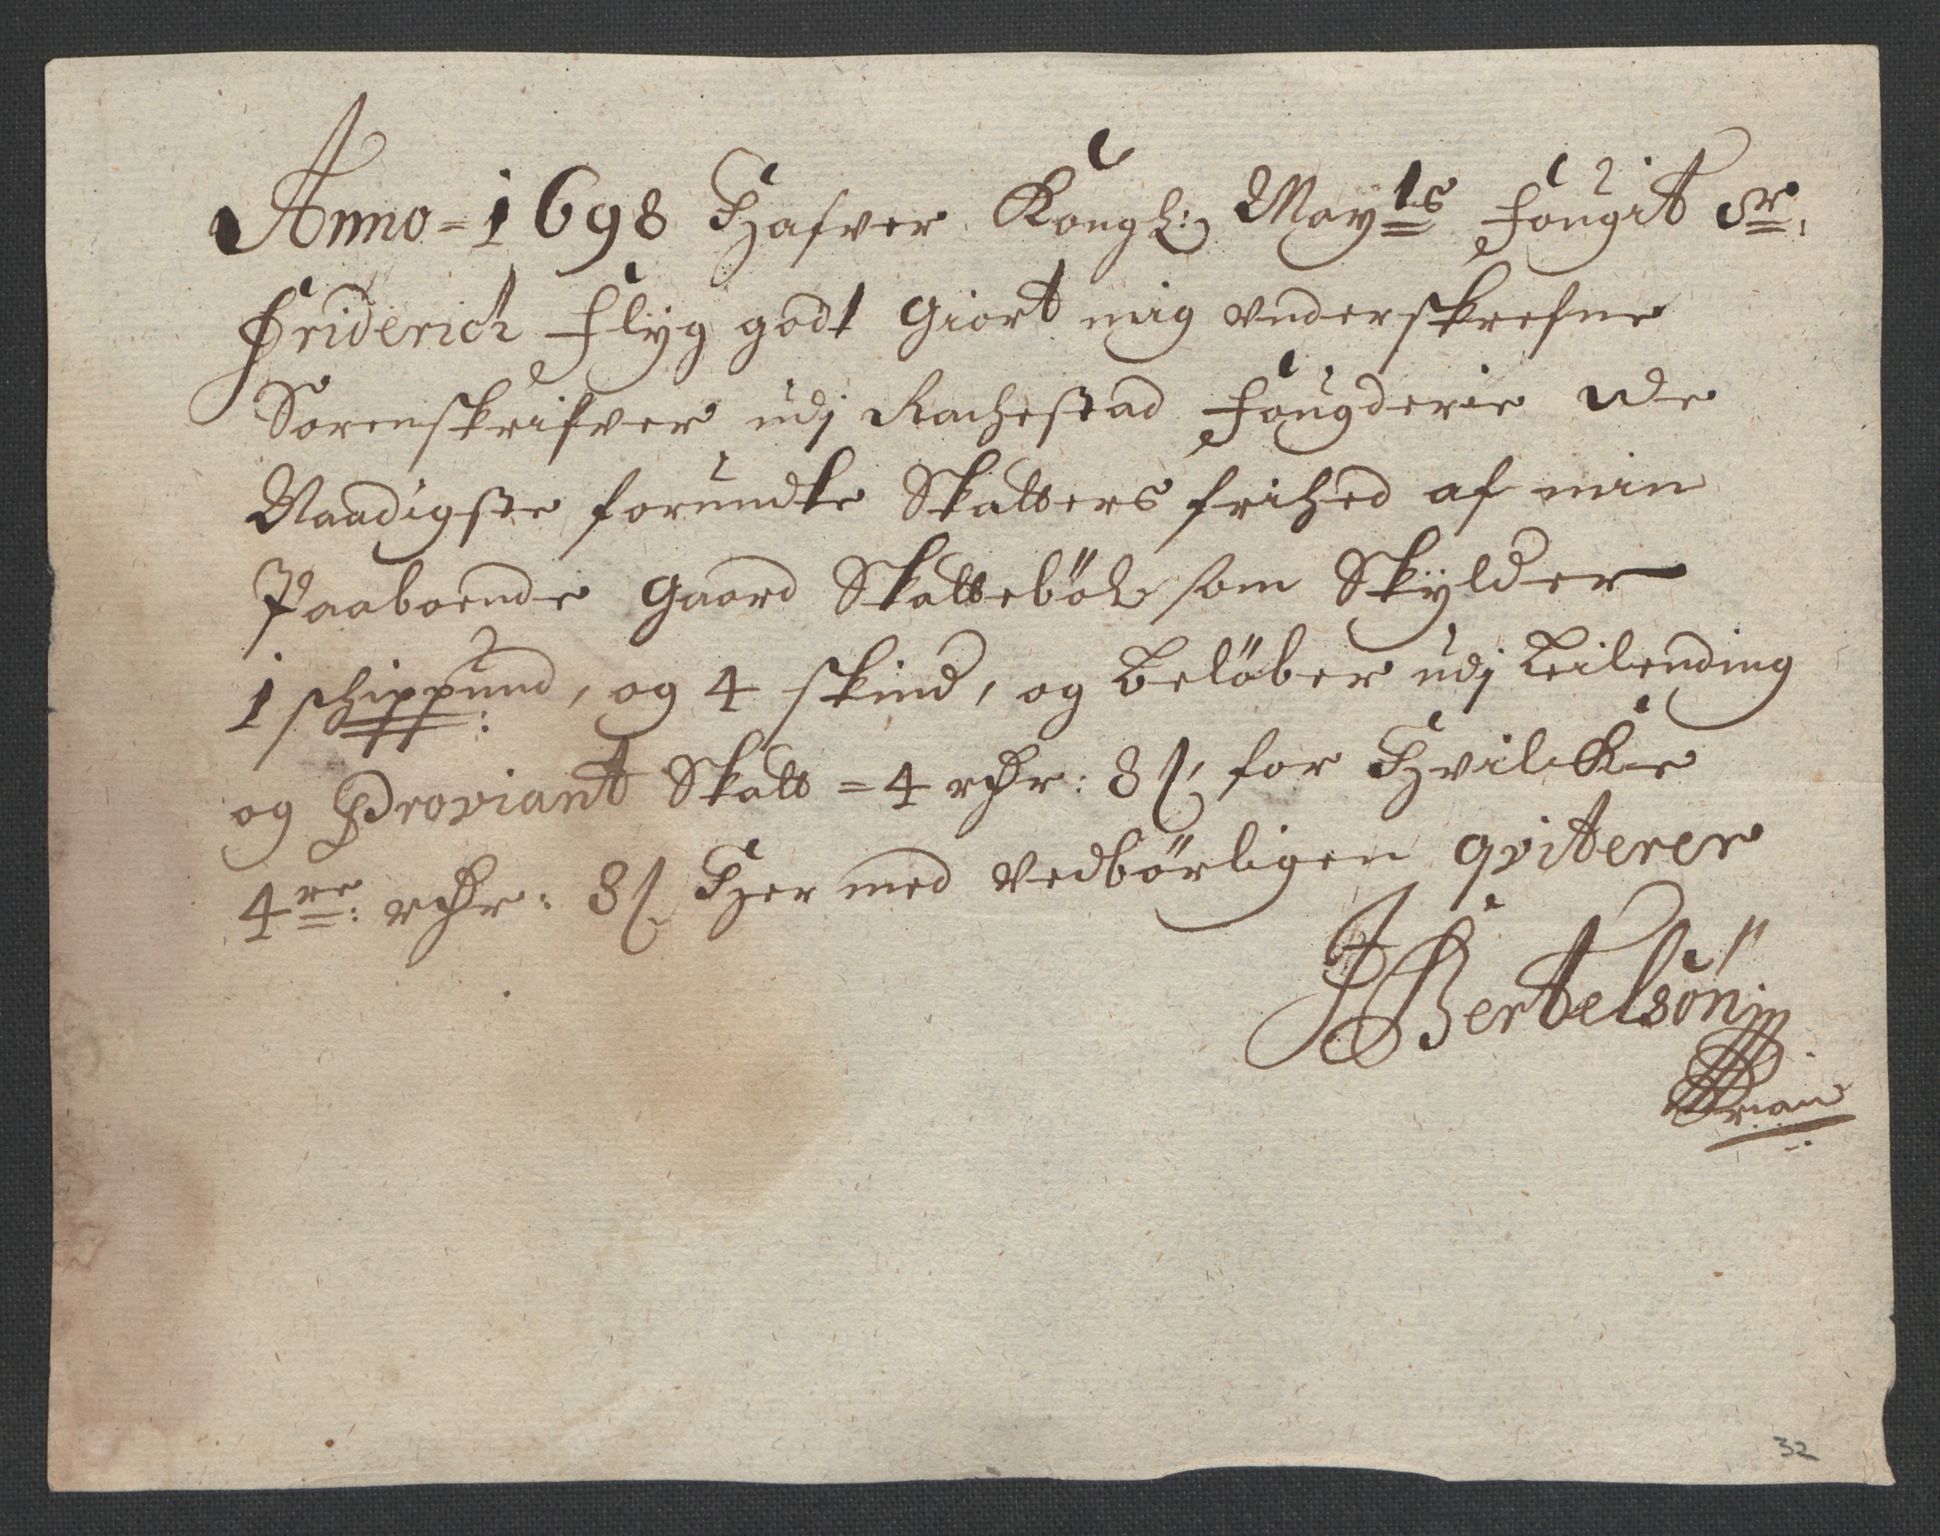 Anno = 1698 Hafver Kongl: Mayts Fougit Sr:
Friderich Flÿg godt Giort mig underskrefne
Sorenskrifver udj Rachestad Fougderie de
Naadigste forundte Skatters frihed af min
Paaboende gaard Skattebøl som Skÿlder
1 schippund, og 4 skind, og beløber udj Leilending
og Proviant Skatt = 4 rdr: 8 s, for Hvilcke
4re: rdr: 8 s Her med vedbørligen qviterer
JBertelsøn
32